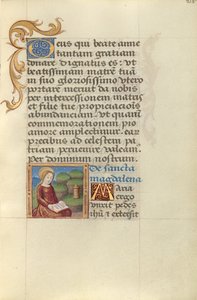 Deus qui beate anne
tantam gratiam
donare dignatus es: ut
beatissimam matre tuã
in suo gloriosissimo utero
portare meruit da nobis
per intercessionem matris
et filie tue propiciacionis
abundanciam. ut quarum
commemorationem, pio
amore amplectimur. ear
precibus ad celestem pa
triam pervenire valeam.
per dominum nostrum.
De sancta
magdalena
Maria
ergo
unxit pedes
ihũ et extersit